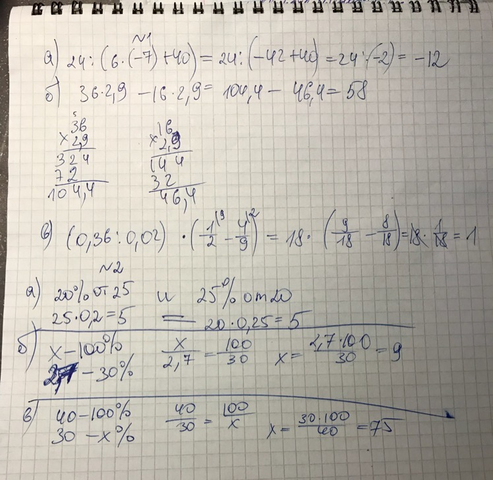 №1
а) 24:(6·(-7)+40)=24:(-42+40)=24:(-2)=-12
б) 36·2,9-16·2,9=104,4-46,4=58
5
36 16
× 2,9 × 2,9
324 144
72 32
104,4 46,4
в) (0,36:0,02)·(1/2 \9 - 4/9 \2)=18·(9/18-8/18)=18·1/18=1
№2
а) 20% от 25 и 25% от 20
25·0,2=5 = 20·0,25=5
б) x-100% x/2,7=100/30 x=2,7·100/30=9
2,7-30%
в) 40-100% 40/30=100/x x=30·100/40=75
30-x%